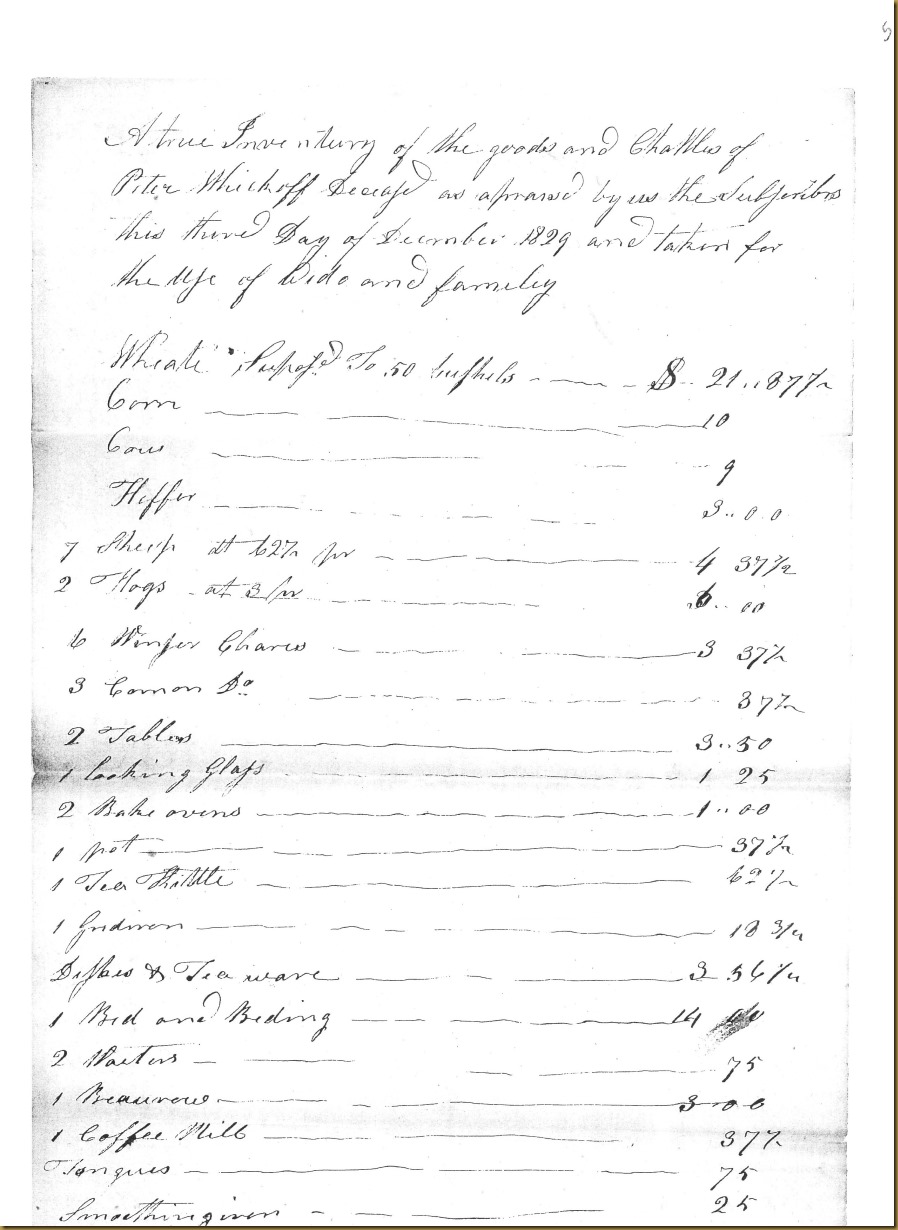 5
A true Inventury of the goods and Chattles of
Peter Whickoff Deceasd as aprased by us the Subscribors
this thired Day of December 1829 and taken for
the Use of Wido and fameley
Wheate Suposd To 50 bushels $ 21..87½
Corn 10
Cous 9
Heffer 3..00
7 Sheep at 62½ pr 4 37½
2 Hogs at 3 pr 6..00
6 Winser Chares 3 37½
3 Comon Do 37½
2 Tables 3..50
1 looking Glass 1 25
2 Bake ovens 1..00
1 pot 37½
1 Tea Kittle 62½
1 Gridiron 18 3/4
Dishes & Tea ware 3 56¼
1 Bed and Beding 14
2 Waeters 75
1 Beaurow 3 00
1 Coffee Mill 37½
Tongues 75
Smoothingiron 25